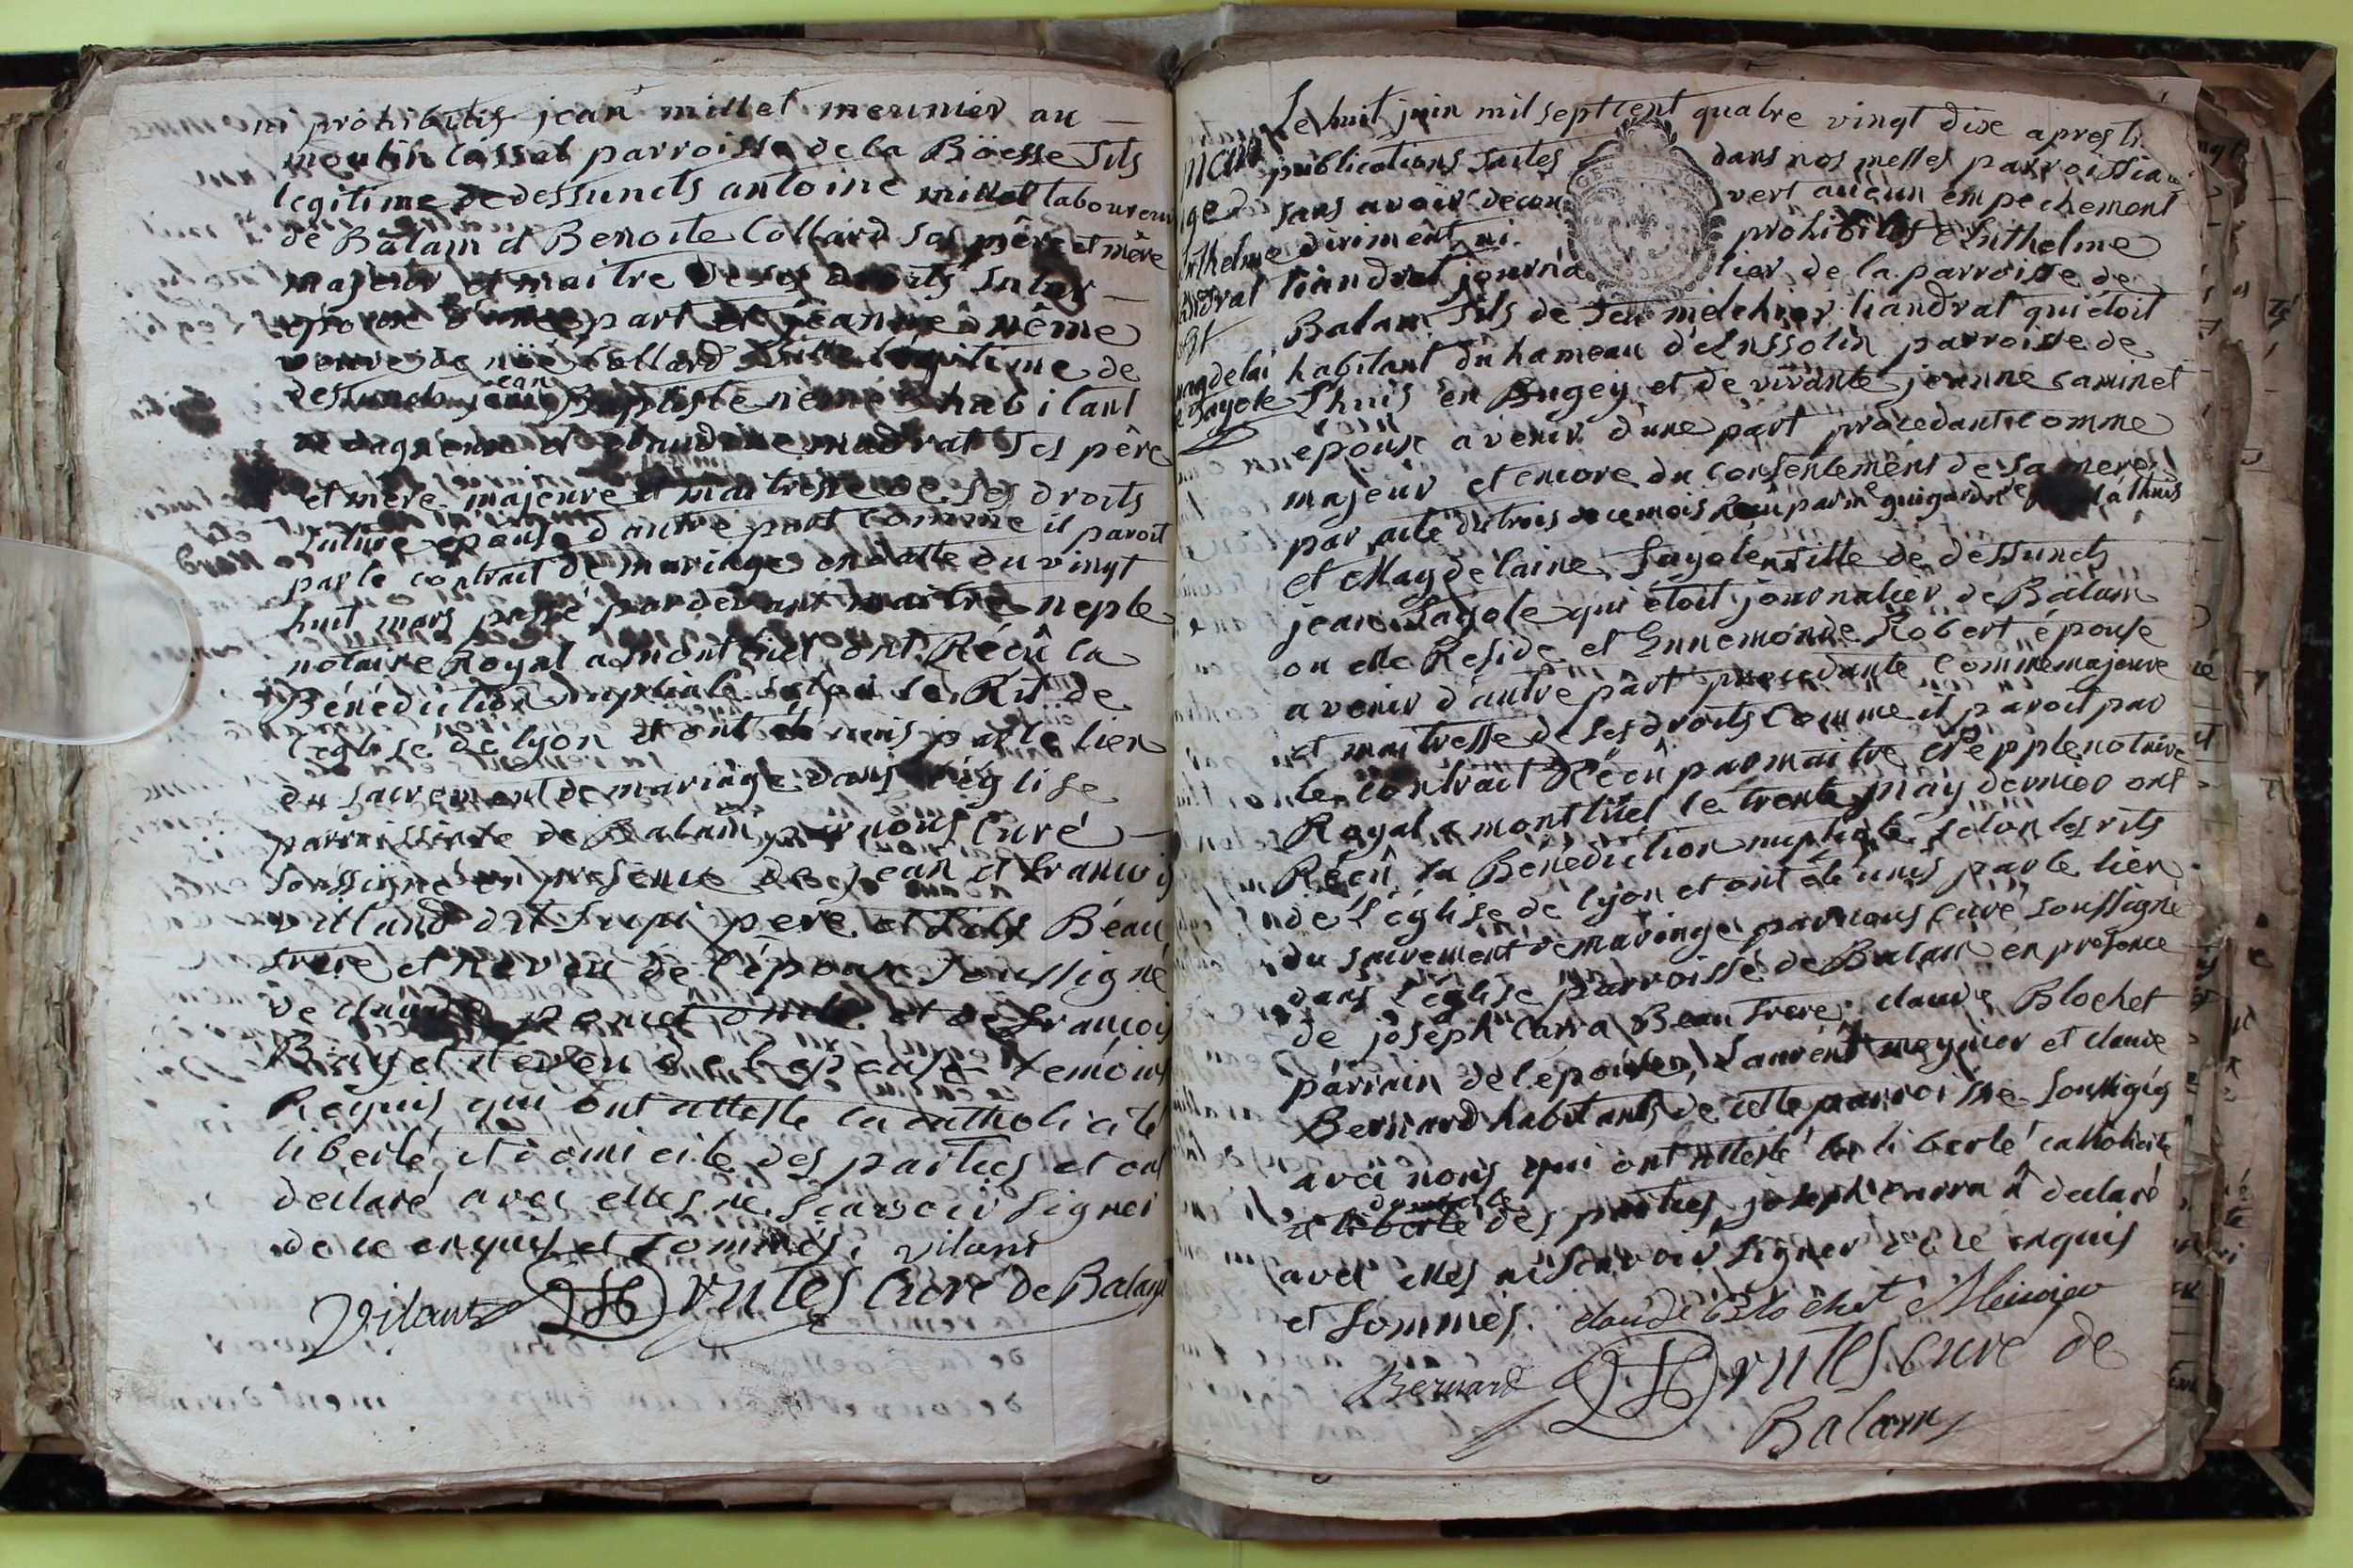 ni prohibitifs jean millet meunier au
moulin cassal parroisse de la Böesse fils
legitime de deffuncts antoine millet laboureur
de Balam et Benoite Collard ses père et mère
majeur et maitre de ses droits futur
epoux d'une part et jeanne nême
veuve de noë Collard fille legitime de
deffuncts jean Baptiste nême habitant
de et madrat ses père
et mère majeure et maitresse de ses droits
future epouse d'autre part comme il paroit
par le contrait de mariage en datte du vingt
huit mars passé par devant maitre neple
notaire Royal a montluel ont Réçû la
Bénédiction nuptiale selon le Rit de
l'eglise de lyon et ont été unis par le lien
du sacrement de mariage dans l'église
parroissiale de Balam par nous Curé
soussigné en presence de jean et francois
viland dit père et fils Beau
frère et Neveu de l'époux soussigné
de claude ponet oncle et de francois
et neveu de l'epouse temoins
Requis qui ont attesté la catholicité
liberté et domicile des parties et ont
déclaré avec elles ne sçavoir signer
de ce enquis et sommés. vilans
Vilans Brutes Curé de Balam
Le huit juin mil sept cent quatre vingt dix apres tr
publications faites dans nos messes parroissia
sans avoir decou vert aucun empechement
diriment ni prohibitifs Enthelme
liandrat journa lier de la parroisse de
Balan fils de feu melchior liandrat qui étoit
habitant du hameau d'Enssolin parroisse de
Lhuis en Bugey et de vivante jeanne caminet
epoux avenir d'une part procedant comme
majeur et encore du consentement de sa mere
par acte du trois de ce mois Reçû par me guigard à lhuis
et Magdelaine fayole fille de deffuncts
jean fayole qui étoit journalier de Balam
ou elle Reside et Ennemonde Robert épouse
avenir d'autre part procedante comme majeure
et maitresse de ses droits comme il paroit par
le contrait Réçû par maitre Nepple notaire
Royal a montluel le trente may dernier ont
Réçû la Bénédiction nuptiale selon les rits
de l'église de lyon et ont été unis par le lien
du sacrement de mariage par nous curé soussigné
dans l'église parroisse de Balan en presence
de joseph Carra Beau frere, claude Blochet
parrain de l'épouse, Laurent meynier et claude
Bernard habitants de cette parroisse soussignés
avec nous qui ont attesté la liberté catholicité
domicile
et liberté des parties, joseph carra a déclaré
avec elles ni scavoir signer de ce enquis
et sommés. claude Blochet Meinier
Bernard Brutes curé de
Balam
mari
age
Enthelme
liandrat
et
magdelai
e fayole